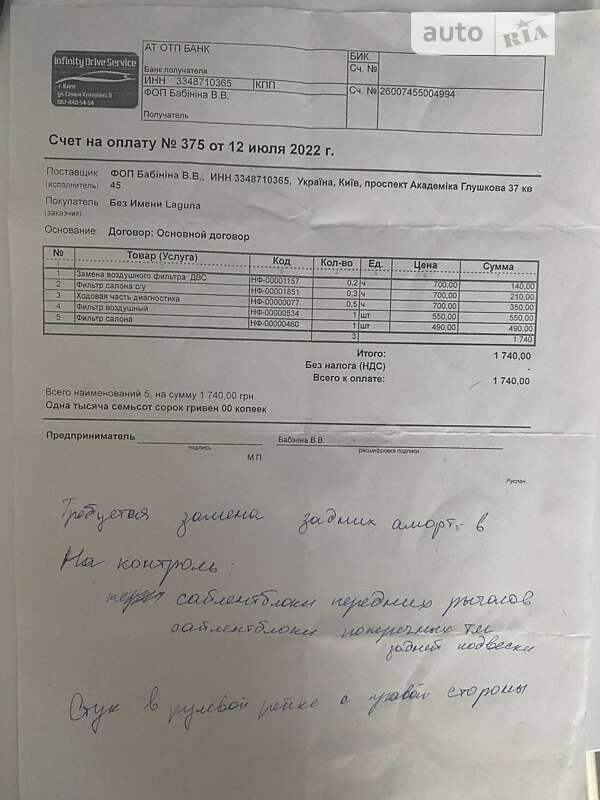 auto RIA
Infinity Drive Service
г. Киев
ул. Семьи Хохловых 8
АТ ОТП БАНК
БИК
Банк получателя
Сч. №
ИНН 3348710365 КПП
ФОП Бабініна В.В.
Сч. № 26007455004994
Получатель
Счет на оплату № 375 от 12 июля 2022 г.
Поставщик (исполнитель) ФОП Бабініна В.В., ИНН 3348710365, Україна, Київ, проспект Академіка Глушкова 37 кв 45
Покупатель (заказчик) Без Имени Laguna
Основание: Договор: Основной договор
№ Товар (Услуга) Код Кол-во Ед. Цена Сумма
1 Замена воздушного фильтра ДВС НФ-00001157 0,2 ч 700,00 140,00
2 Фильтр салона с/у НФ-00001851 0,3 ч 700,00 210,00
3 Ходовая часть диагностика НФ-00000077 0,5 ч 700,00 350,00
4 Фильтр воздушный НФ-00000534 1 шт 550,00 550,00
5 Фильтр салона НФ-00000460 1 шт 490,00 490,00
3 1 740
Итого: 1 740,00
Без налога (НДС) -
Всего к оплате: 1 740,00
Всего наименований 5, на сумму 1 740,00 грн.
Одна тысяча семьсот сорок гривен 00 копеек
Предприниматель Бабініна В.В.
подпись расшифровка подписи
М.П.
Руслан
Требуется замена задних аморт-в
На контроль:
сайлентблоки передних рычагов
сайлентблоки поперечных тяг
задней подвески
Стук в рулевой рейке с правой стороны